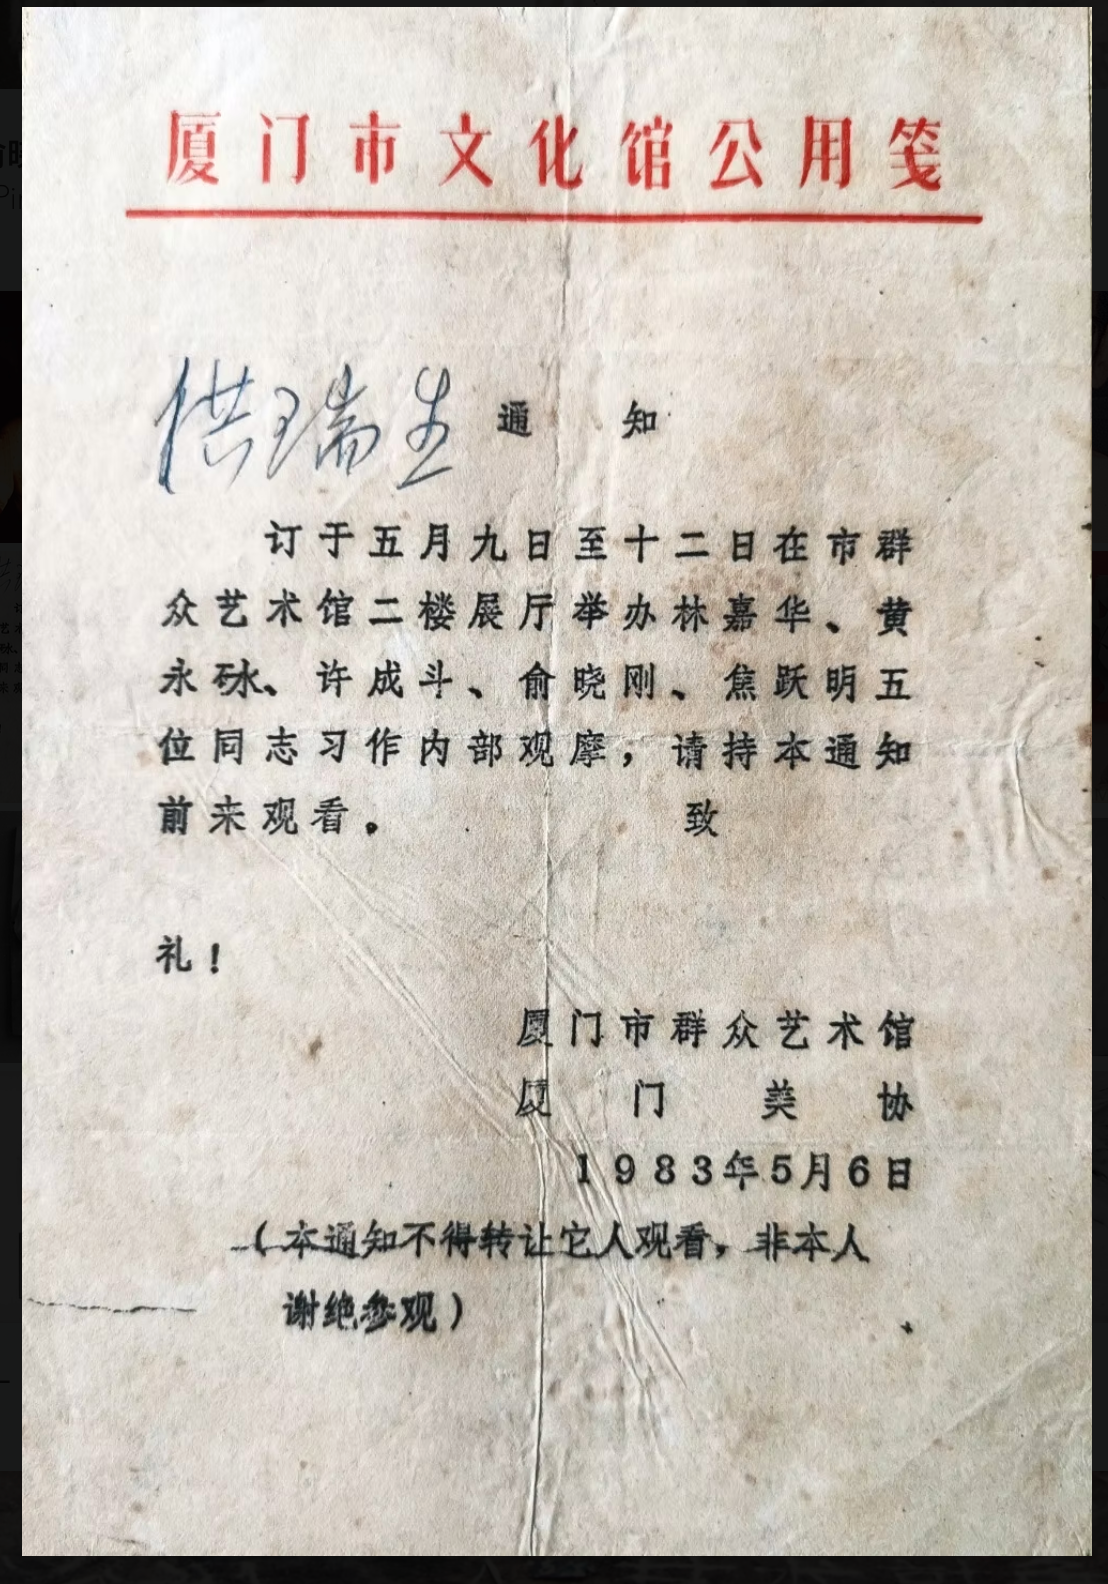 厦门市文化馆公用笺
洪瑞生 通 知
订于五月九日至十二日在市群
众艺术馆二楼展厅举办林嘉华、黄
永砯、许成斗、俞晓刚、焦跃明五
位同志习作内部观摩，请持本通知
前来观看。 致
礼！
厦门市群众艺术馆
厦 门 美 协
1983年5月6日
（本通知不得转让它人观看，非本人
谢绝参观）